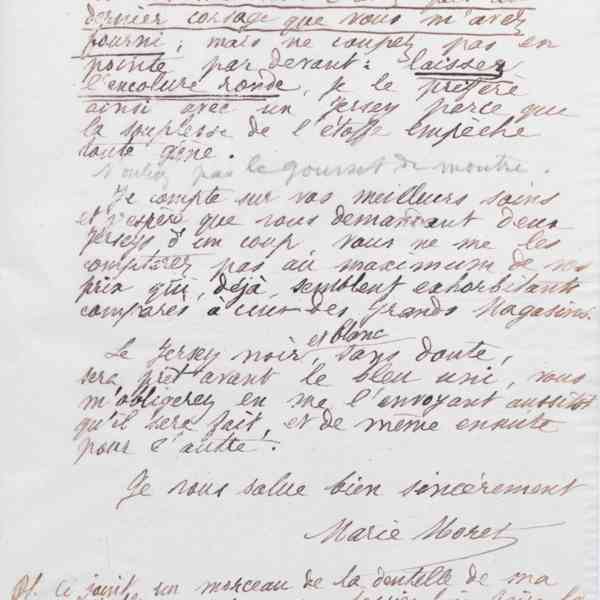 dernier corsage que vous m'avez
fourni; mais ne coupez pas en
pointe par devant: laissez
l'encolure ronde, je le préfère
ainsi avec un Jersey parce que
la souplesse de l'étoffe empêche
toute gêne.
N'oubliez pas le gousset de montre.
Je compte sur vos meilleurs soins
et j'espère que vous demandant deux
Jerseys d'un coup, vous ne me les
compterez pas au maximum de vos
prix qui, déjà, semblent exhorbitants
comparés à ceux des Grands Magasins.
et blanc
Le Jersey noir, sans doute,
sera prêt avant le bleu uni, vous
m'obligerez en me l'envoyant aussitôt
qu'il sera fait, et de même ensuite
pour l'autre.
Je vous salue bien sincèrement
Marie Moret
Ps. Ci joint un morceau de la dentelle de ma